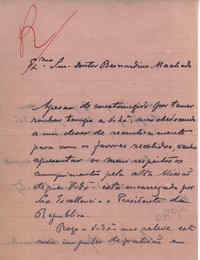 R
Exmo. Snr. Doutor Bernardino Machado
Apesar de constrangido por tomar
tempo a V. Exa.,
a meu dever de reconhecimento
para com os favores recebidos, venho
apresentar os meus respeitos
cumprimentos pela alta missão
de que V. Exa. está encarregado por
Sua Excellencia o Presidente da
Republica.
Rogo a V. Exa. me releve este
meu impulso de gratidão, e